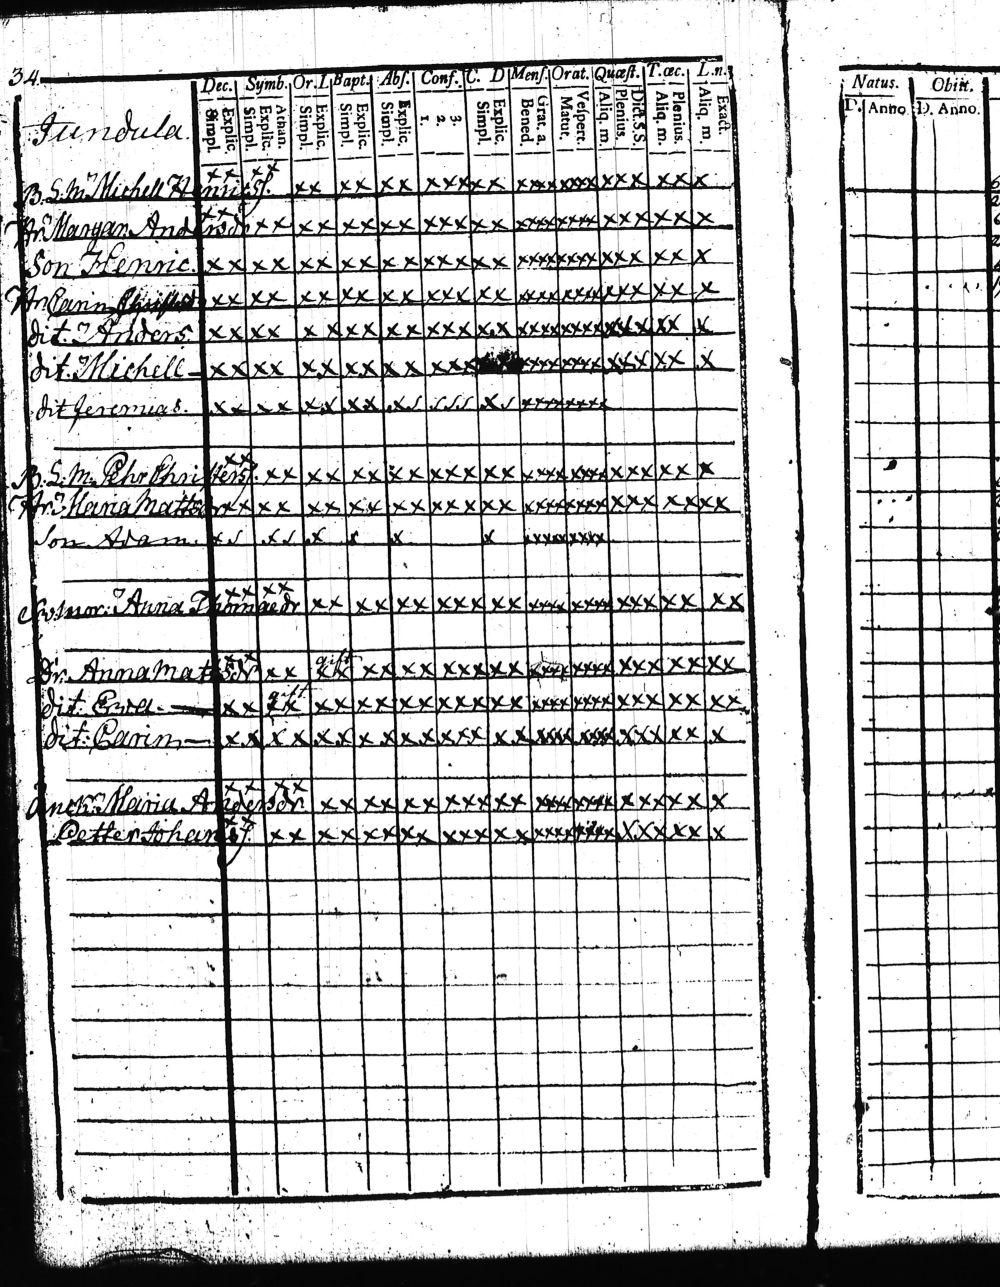 34.
Dec. Symb. Or. I. Bapt. Abs. Conf. C. D Mens. Orat. Quæst. T. œc. L.n.
Simpl. Explic. Simpl. Explic. Athan. Simpl. Explic. Simpl. Explic. Simpl. Explic. 1. 2. 3. Simpl. Explic. Bened. Grat. a. Matut. Vespert. Aliq. m. Plenius. Dict. S. S. Aliq. m. Plenius. Aliq. m. Exact.
Natus. Obiit.
D. Anno D. Anno.
Jundula.
B. S. M. Michell Henrics. xx xx xx xx xx xxx xx xxxx xxxx xxx xx x
Hr. Margan Andersdr xx xx xx xx xx xxx xx xxxx xxxx xxx xx x
Son Henric. xx xx xx xx xx xxx xx xxxx xxxx xxx xx x
Carin xx xx xx xx xx xxx xx xxxx xxxx xxx xx x
dit. Anders. xx xx xx xx xx xxx xx xxxx xxxx xxx xx x
dit. Michell xx xx xx xx xx xxx xxxx xxxx xxx xx x
dit Jeremias. xx xx xx xx xs sss xs xxxx xxxx
B. S. M. Pehr Christers. xx xx xx xx xx xxx xx xxxx xxxx xxx xx x
Hr. Maria Mattsdr xx xx xx xx xx xxx xx xxxx xxxx xxx xx xx
Son Adam xs xs x s x x xxxx xxxx
Anna Thomaedr xx xx xx xx xx xxx xx xxxx xxxx xxx xx xx
Dr. Anna Mattsdr xx xx gift xx xx xx xxx xx xxxx xxxx xxx xx xx
dit. Ewa xx gift xx xx xx xx xxx xx xxxx xxxx xxx xx xx
dit. Carin xx xx xx xx xx xxx xx xxxx xxxx xxx xx x
Enck. Maria Andersdr. xx xx xx xx xx xxx xx xxxx xxxx xxx xx x
Petter Johans xx xx xx xx xx xxx xx xxxx xxxx xxx xx x